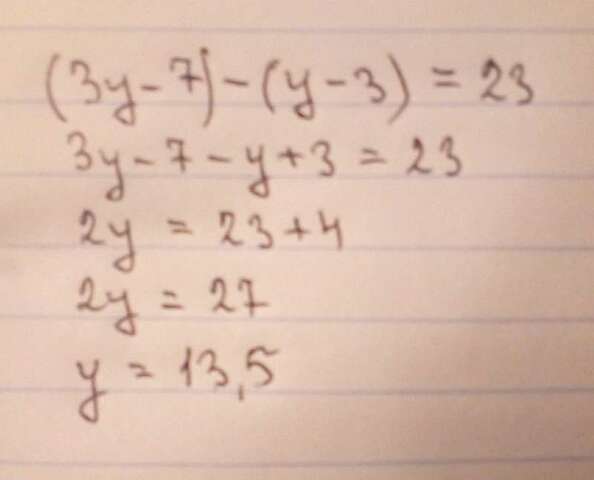 (3y - 7) - (y - 3) = 23
3y - 7 - y + 3 = 23
2y = 23 + 4
2y = 27
y = 13,5